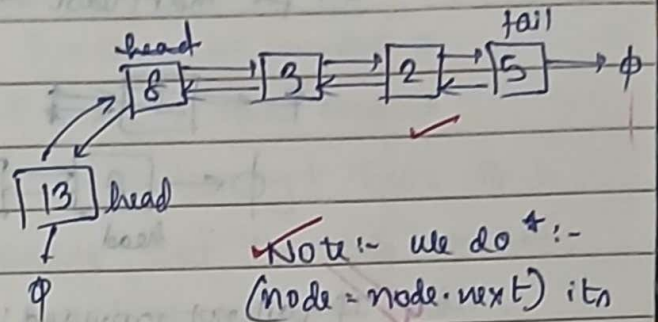 head
tail
8 3 2 5 φ
13 head
φ
Note :- we do * :-
(node = node.next) its